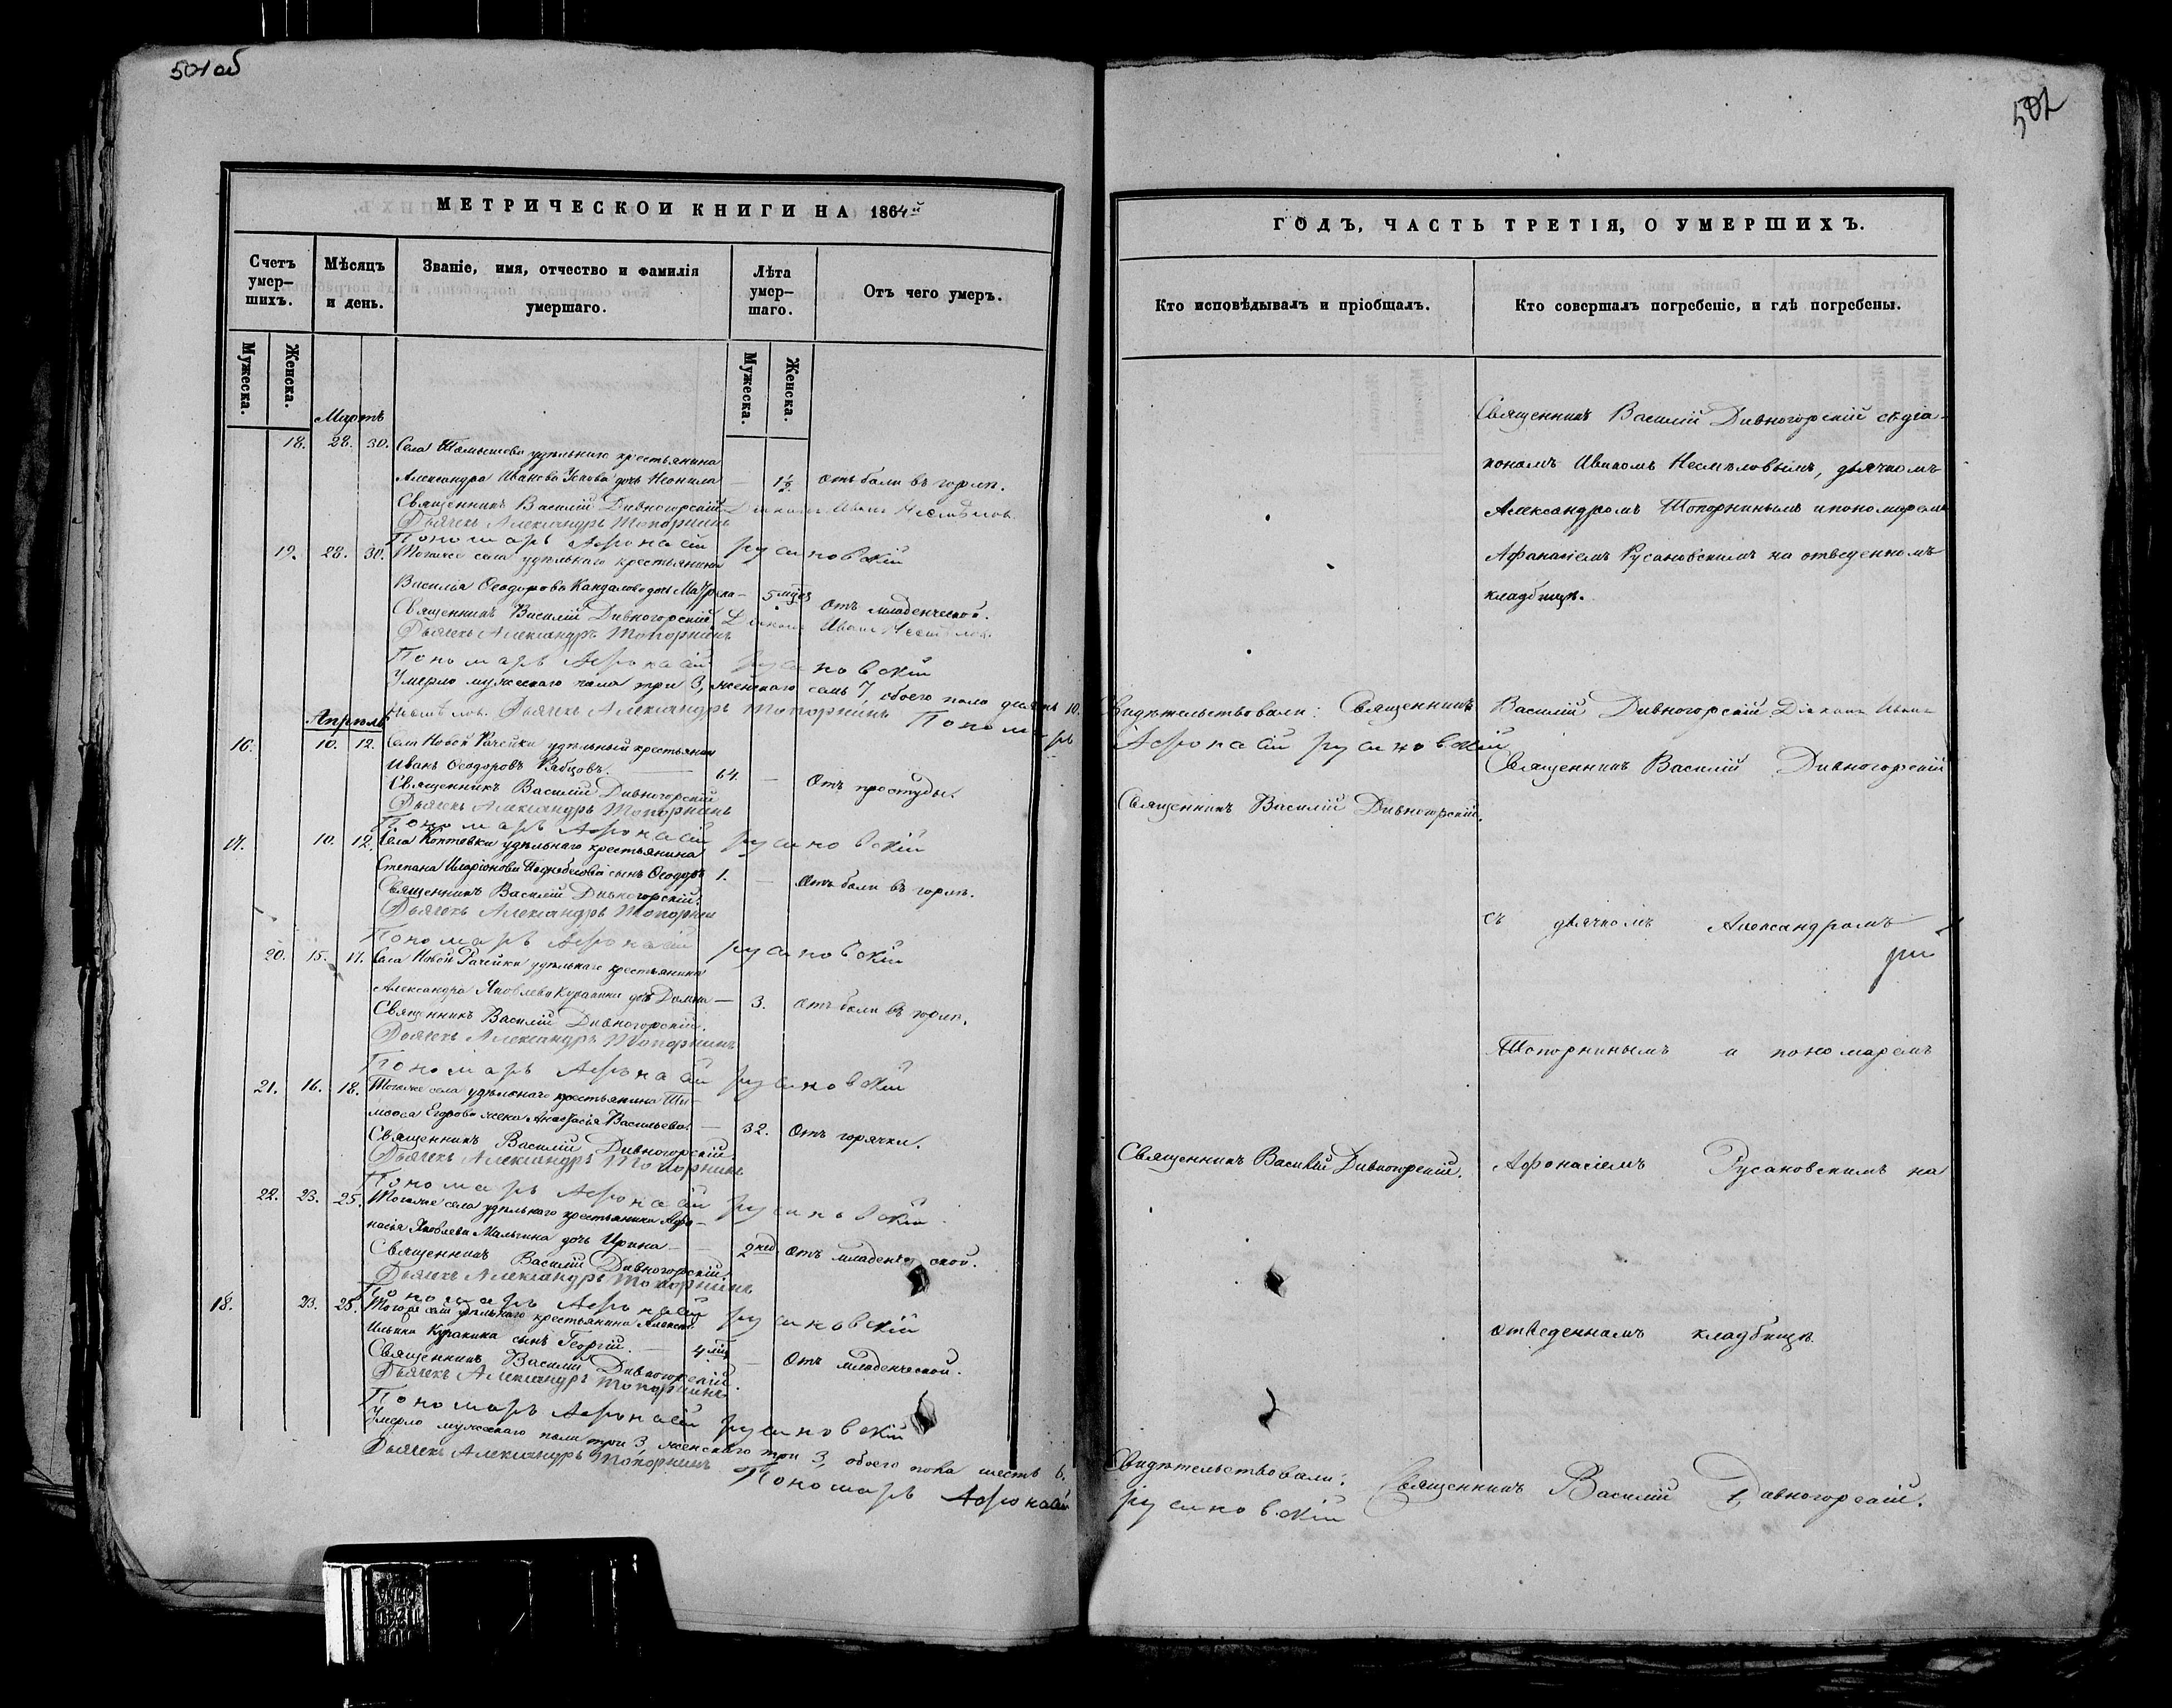 501 об
МЕТРИЧЕСКОЙ КНИГИ НА 1864й
Счетъ умер-
шихъ.
Мѣсяцъ
и день.
Званіе, имя, отчество и фамилія
умершаго.
Лѣта
умер-
шаго.
Отъ чего умеръ.
Мужеска.
Женска.
Мужеска.
Женска.
Мартъ
18. 28. 30. Села удѣльнаго крестьянина
Александра Иванова Ускова дочь Неонила — 1½ отъ боли въ горлѣ.
Священникъ Василій Дивногорскій Діаконъ Иванъ Несмѣловъ
Дьячекъ Александръ Топорнинъ
Пономарь Афонасій Русановскій
19. 28. 30. Тогоже села удѣльнаго крестьянина
Василья Ѳеодорова дочь Матрена — 5 мѣс отъ младенческой.
Священникъ Василій Дивногорскій Діаконъ Иванъ Несмѣловъ.
Дьячекъ Александръ Топорнинъ
Пономарь Афонасій Русановскій
Умерло мужескаго пола три 3, женскаго семь 7, обоего пола десять 10.
Несмѣловъ. Дьячекъ Александръ Топорнинъ Пономарь
Апрѣль
16. 10. 12. Села Новой Рачейки удѣльный крестьянин
Иванъ Ѳеодоровъ Рябцовъ. — 64. — Отъ простуды.
Священникъ Василій Дивногорскій
Дьячекъ Александръ Топорнинъ
Пономарь Афонасій Русановскій
17. 10. 12. Села Коптевки удѣльнаго крестьянина
Степана Иларіонова сынъ Ѳеодоръ 1. — Отъ боли въ горлѣ.
Священникъ Василій Дивногорскій.
Дьячекъ Александръ Топорнин
Пономарь Афонасій Русановскій
20. 15. 17. Села Новой Рачейки удѣльнаго крестьянина
Александра Яковлева Куракина дочь Домна — 3. Отъ боли въ горлѣ.
Священникъ Василій Дивногорскій.
Дьячекъ Александръ Топорнинъ
Пономарь Афонасій Русановскій
21. 16. 18. Тогоже села удѣльнаго крестьянина Ти-
мофея Егорова жена Анастасія Васильева. — 32. Отъ горячки.
Священникъ Василій Дивногорскій.
Дьячекъ Александръ Топорнинъ
Пономарь Афонасій Русановскій
22. 23. 25. Тогоже села удѣльнаго крестьянина Афа-
насія Яковлева Мальгина дочь Ирина — 2 нед Отъ младенческой.
Священникъ Василій Дивногорскій.
Дьячекъ Александръ Топорнинъ
Пономарь Афонасій Русановскій
18. 23. 25. Тогоже села удѣльнаго крестьянина Алексѣя
Ильина Куракина сынъ Георгій. — 4 мѣц — Отъ младенческой.
Священникъ Василій Дивногорскій.
Дьячекъ Александръ Топорнинъ
Пономарь Афонасій Русановскій
Умерло мужескаго пола три 3, женскаго три 3, обоего пола шесть 6.
Дьячекъ Александръ Топорнинъ Пономарь Афонасій
502
ГОДЪ, ЧАСТЬ ТРЕТІЯ, О УМЕРШИХЪ.
Кто исповѣдывалъ и пріобщалъ.
Кто совершалъ погребеніе, и гдѣ погребены.
Священникъ Василій Дивногорскій съ діа-
кономъ Иваномъ Несмѣловымъ, дьячкомъ
Александромъ Топорнинымъ и пономаремъ
Афанасіемъ Русановскимъ на отведенномъ
кладбищѣ.
Свидѣтельствовали: Священникъ Василій Дивногорскій Діаконъ Иванъ
Афонасій Русановскій
Священникъ Василій Дивногорскій
Священникъ Василій Дивногорскій.
съ дьячкомъ Александромъ
Топорнинымъ и пономаремъ
Священникъ Василій Дивногорскій.
Афонасіемъ Русановскимъ на
отведенномъ кладбищѣ.
Свидѣтельствовали: Священникъ Василій Дивногорскій.
Русановскій